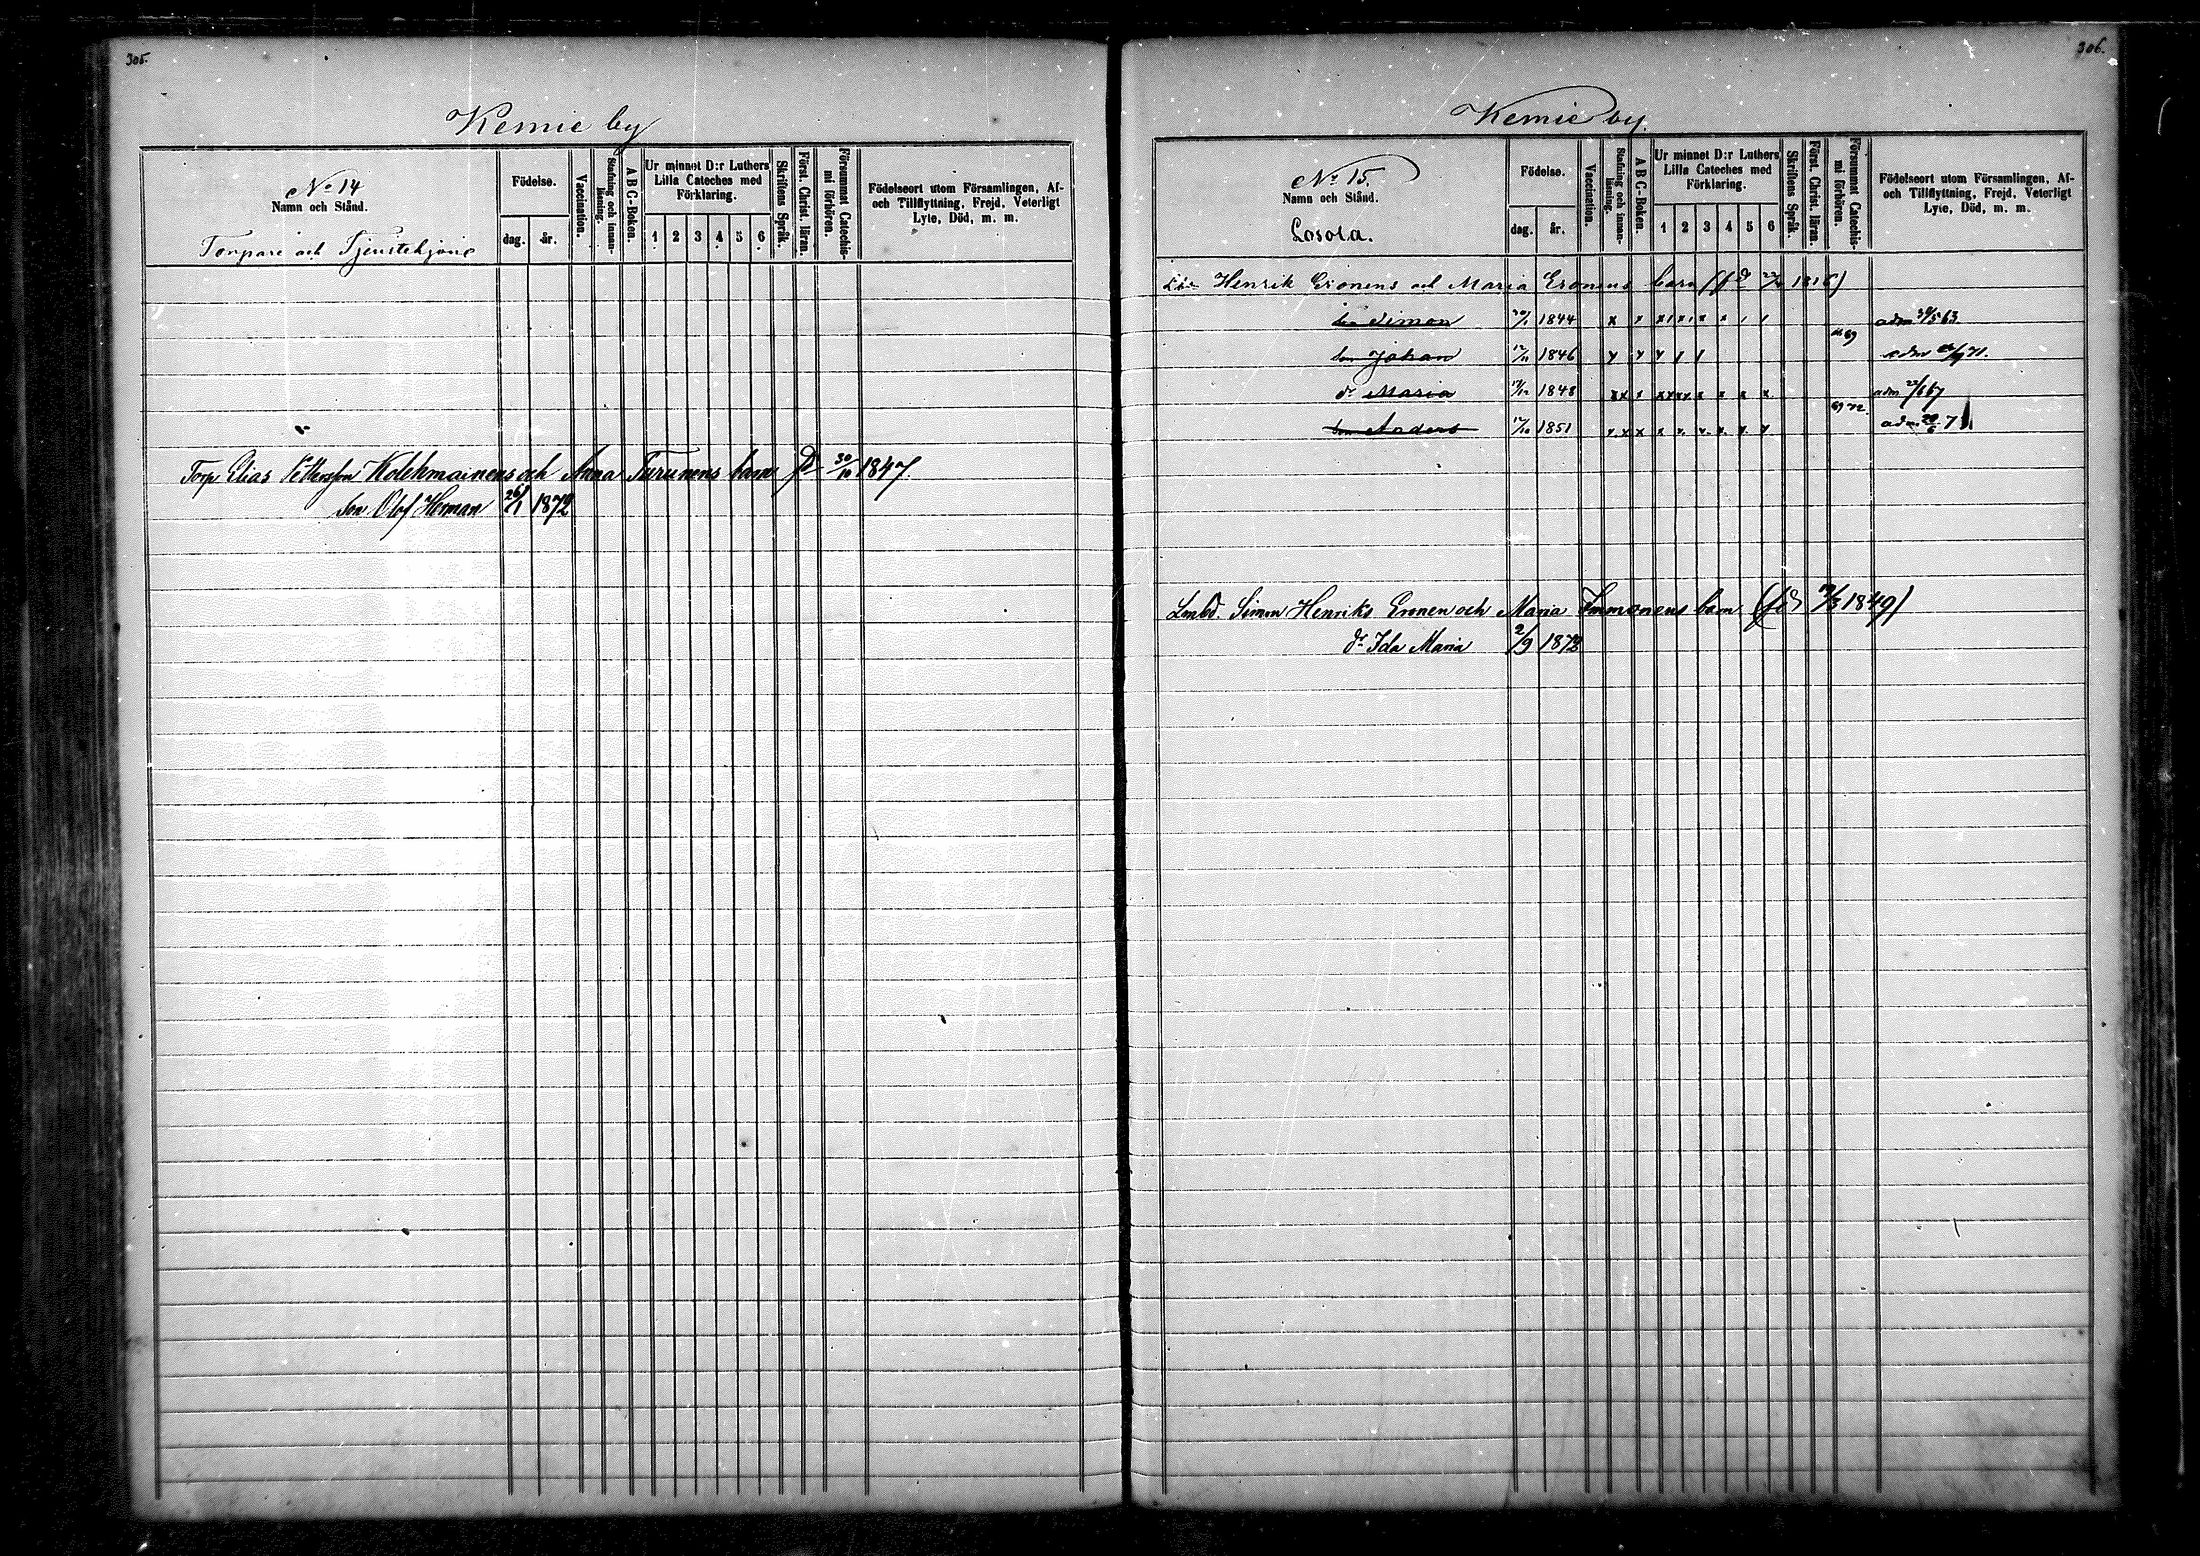 305.
Kemie by
No 14
Namn och Stånd.
Torpare och Tjenstehjone
Födelse.
dag.
år.
Vaccination.
Stafning och innan-
läsning.
A B C-Boken.
Ur minnet D:r Luthers
Lilla Cateches med
Förklaring.
1 2 3 4 5 6
Skriftens Språk.
Först. Christ. läran.
Försummat Catechis-
mi förhören.
Födelseort utom Församlingen, Af-
och Tillflyttning, Frejd, Veterligt
Lyte, Död, m. m.
Torp Elias Pettersson Kolehmainens och Anna Turunens barn fd 30/10 1847.
Son Olof Herman 26/1 1872
306.
Kemie by.
No 15.
Namn och Stånd.
Losola.
Födelse.
dag.
år.
Vaccination.
Stafning och innan-
läsning.
A B C-Boken.
Ur minnet D:r Luthers
Lilla Cateches med
Förklaring.
1 2 3 4 5 6
Skriftens Språk.
Först. Christ. läran.
Försummat Catechis-
mi förhören.
Födelseort utom Församlingen, Af-
och Tillflyttning, Frejd, Veterligt
Lyte, Död, m. m.
Henrik Eronens och Maria Eronens barn (fd 1816)
Simon 1844 x x x x x x x adm 63
son Johan 1846 69 adm 71.
dr Maria 1848 x x x x x x x x x x adm 22/6 67
son Anders 1851 x x x x x x x x 69 72 adm 7
Lmbd. Simon Henriks Eronen och Maria Immonens barn (fd 1849)
dr Ida Maria 2/9 1872